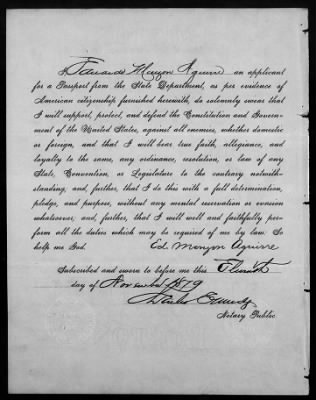 I, Eduardo Monzon Aguirre an applicant
for a Passport from the State Department, as per evidence of
American citizenship furnished herewith, do solemnly swear that
I will support, protect, and defend the Constitution and Govern-
ment of the United States, against all enemies, whether domestic
or foreign, and that I will bear true faith, allegiance, and
loyalty to the same, any ordinance, resolution, or law of any
State, Convention, or Legislature to the contrary notwith-
standing, and, further, that I do this with a full determination,
pledge, and purpose, without any mental reservation or evasion
whatsoever; and, further, that I will well and faithfully per-
form all the duties which may be required of me by law. So
help me God. Ed Monzon Aguirre
Subscribed and sworn to before me this
day of 1879
Notary Public